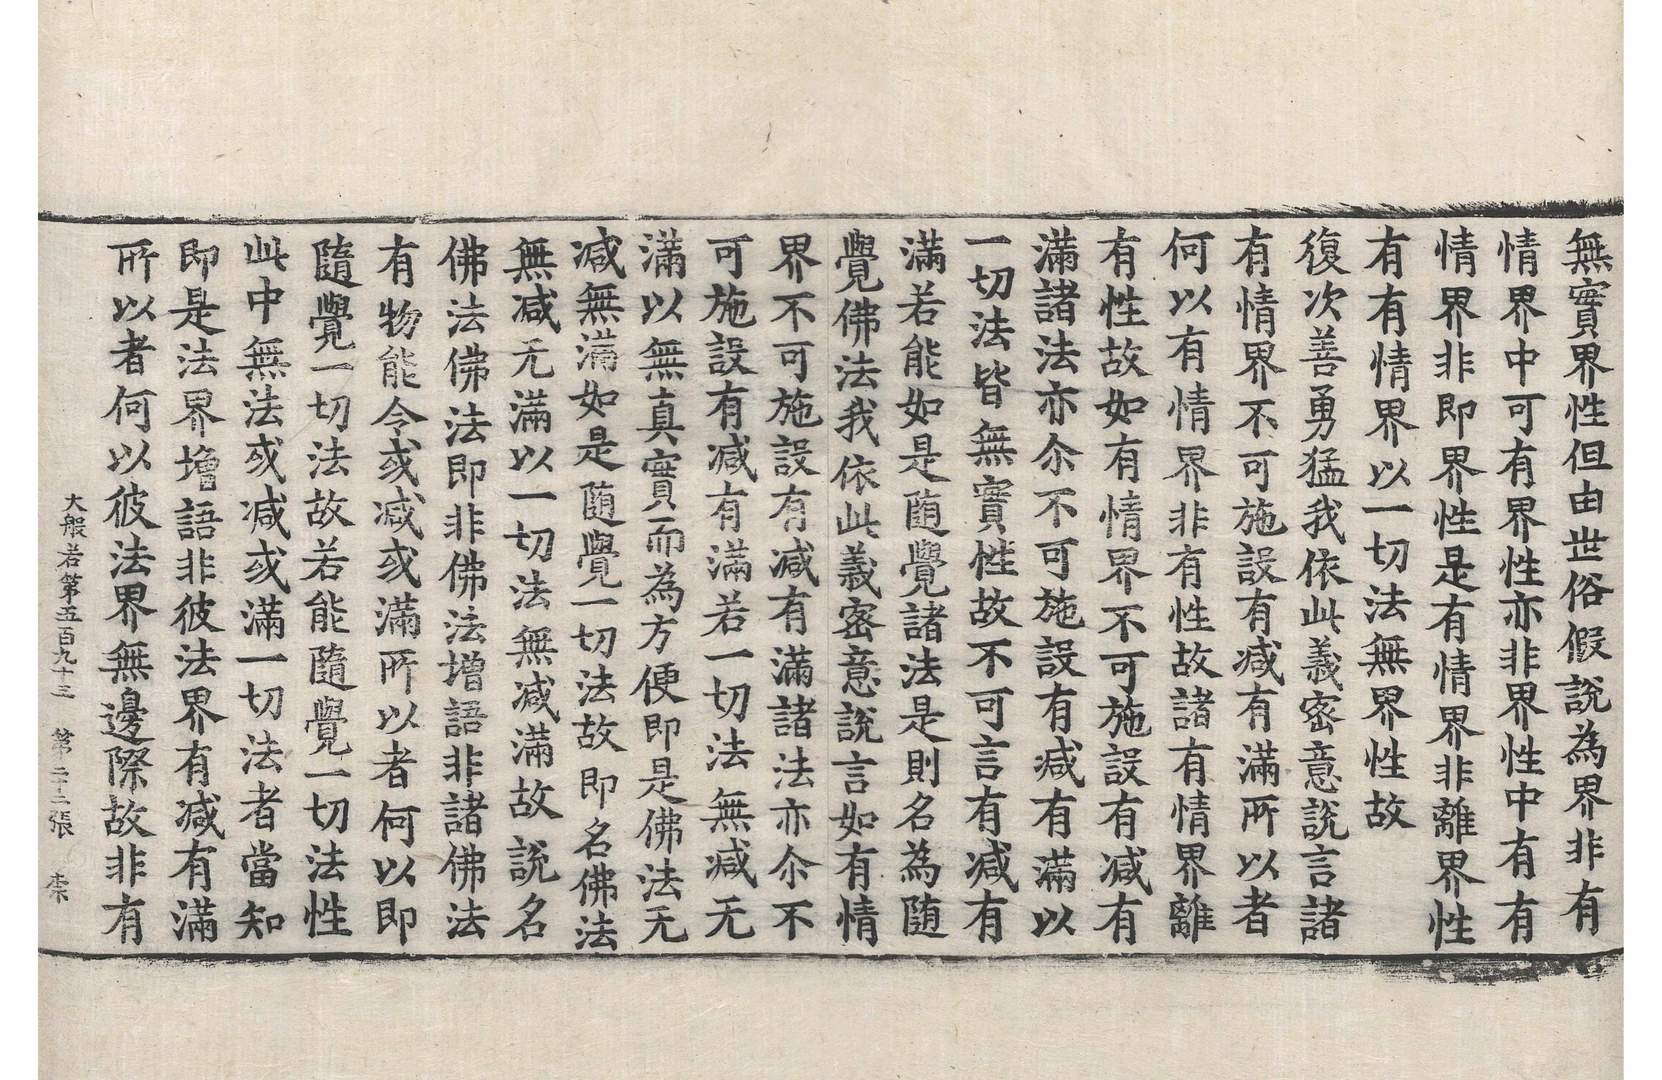 無實界性但由世俗假說為界非有
情界中可有界性亦非界性中有有
情界非即界性是有情界非離界性
有有情界以一切法無界性故
復次善勇猛我依此義密意說言諸
有情界不可施設有减有滿所以者
何以有情界非有性故諸有情界離
有性故如有情界不可施設有减有
滿諸法亦尒不可施設有减有滿以
一切法皆無實性故不可言有减有
滿若能如是随覺諸法是則名為随
覺佛法我依此義密意說言如有情
界不可施設有减有滿諸法亦尒不
可施設有减有滿若一切法無减无
滿以無真實而為方便即是佛法无
减無滿如是随覺一切法故即名佛法
無减无滿以一切法無减滿故說名
佛法佛法即非佛法增語非諸佛法
有物能令或减或滿所以者何以即
隨覺一切法故若能隨覺一切法性
此中無法或减或滿一切法者當知
即是法界增語非彼法界有减有滿
所以者何以彼法界無邊際故非有
大般若第五百九十三 第二十二張 柰